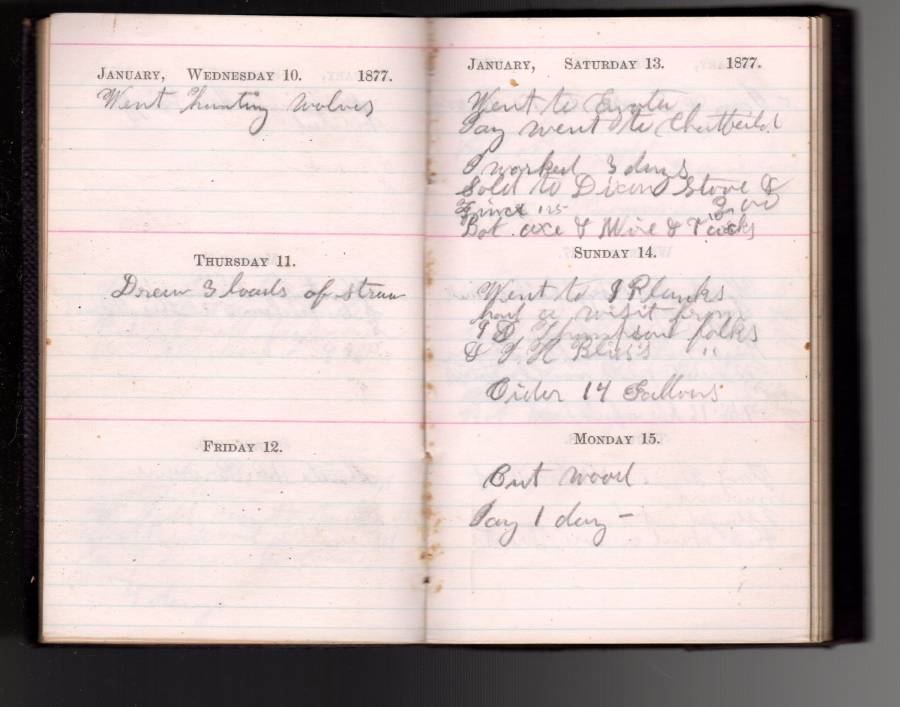 JANUARY, WEDNESDAY 10. 1877.
Went hunting wolves
THURSDAY 11.
Drew 3 loads of straw
FRIDAY 12.
JANUARY, SATURDAY 13. 1877.
Went to Eyota
Jay went to Chatfield
I worked 3 days
Sold to Dixon Stove &
3.00
Bot. axe & Wire & Tacks
SUNDAY 14.
Went to J Planks
had a visit from
J D Thompson folks
& Bliss's "
Cider 14 Gallons
MONDAY 15.
Cut wood
Jay 1 day –